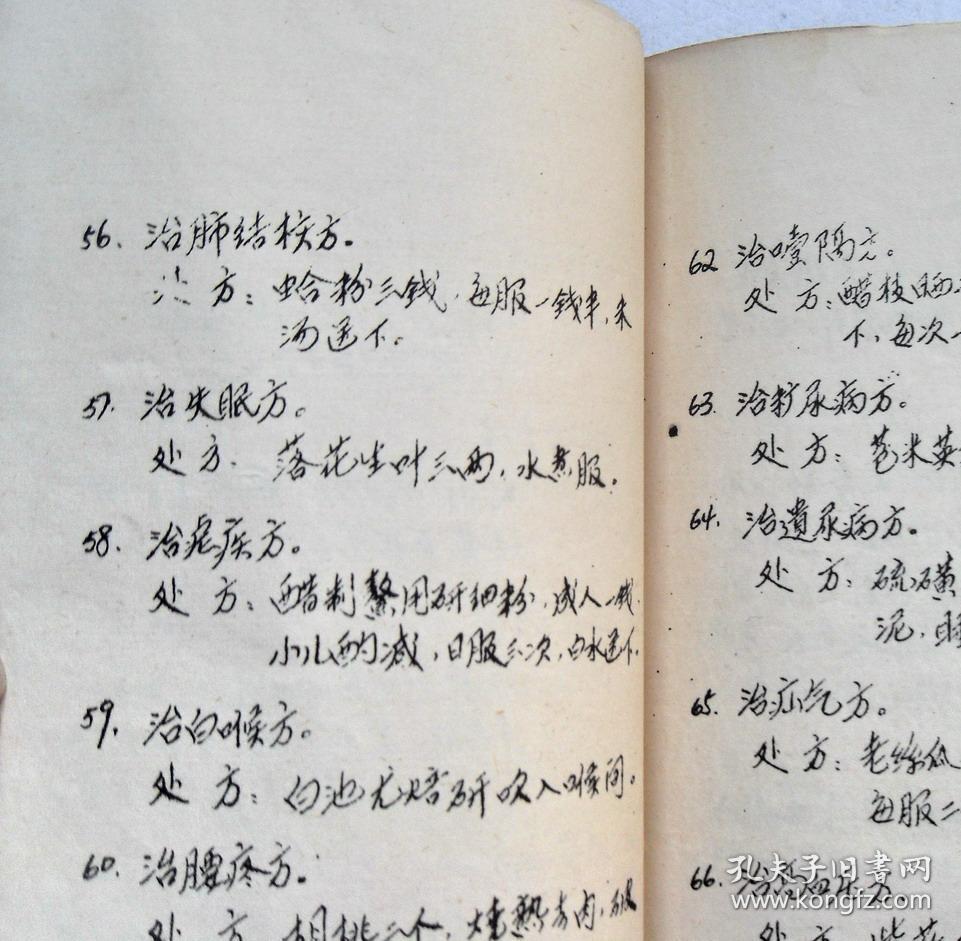 56. 治肺结核方。
处方：蛤粉三钱，每服一钱半，米
汤送下。
57. 治失眠方。
处方. 落花生叶三两，水煮服。
58. 治疟疾方。
处方：醋制鳖甲研细粉，成人一钱，
小儿酌减，日服三次，白水送下。
59. 治白喉方。
处方：白池尤焙研吹入喉间。
60. 治腰疼方。
处方 胡桃二个，烧熟去肉，服
62 治噎隔方。
处方：醋枝晒
下，每次一
63. 治糖尿病方。
处方：苞米英
64. 治遗尿病方。
处方：硫磺
泥，睡
65. 治疝气方。
处方：老丝瓜
每服二
66. 治
处方
孔夫子旧书网
www.kongfz.com